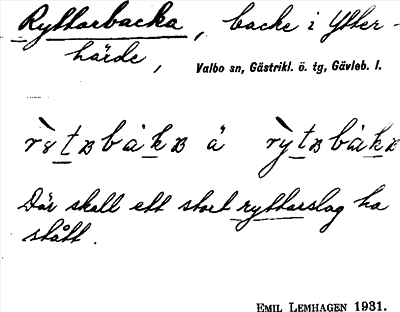 Ryttarbacka, backe i Ytter-
härde,
Valbo sn, Gästrikl. ö. tg, Gävleb. l.
Där skall ett stort ryttarslag ha
stått.
EMIL LEMHAGEN 1931.